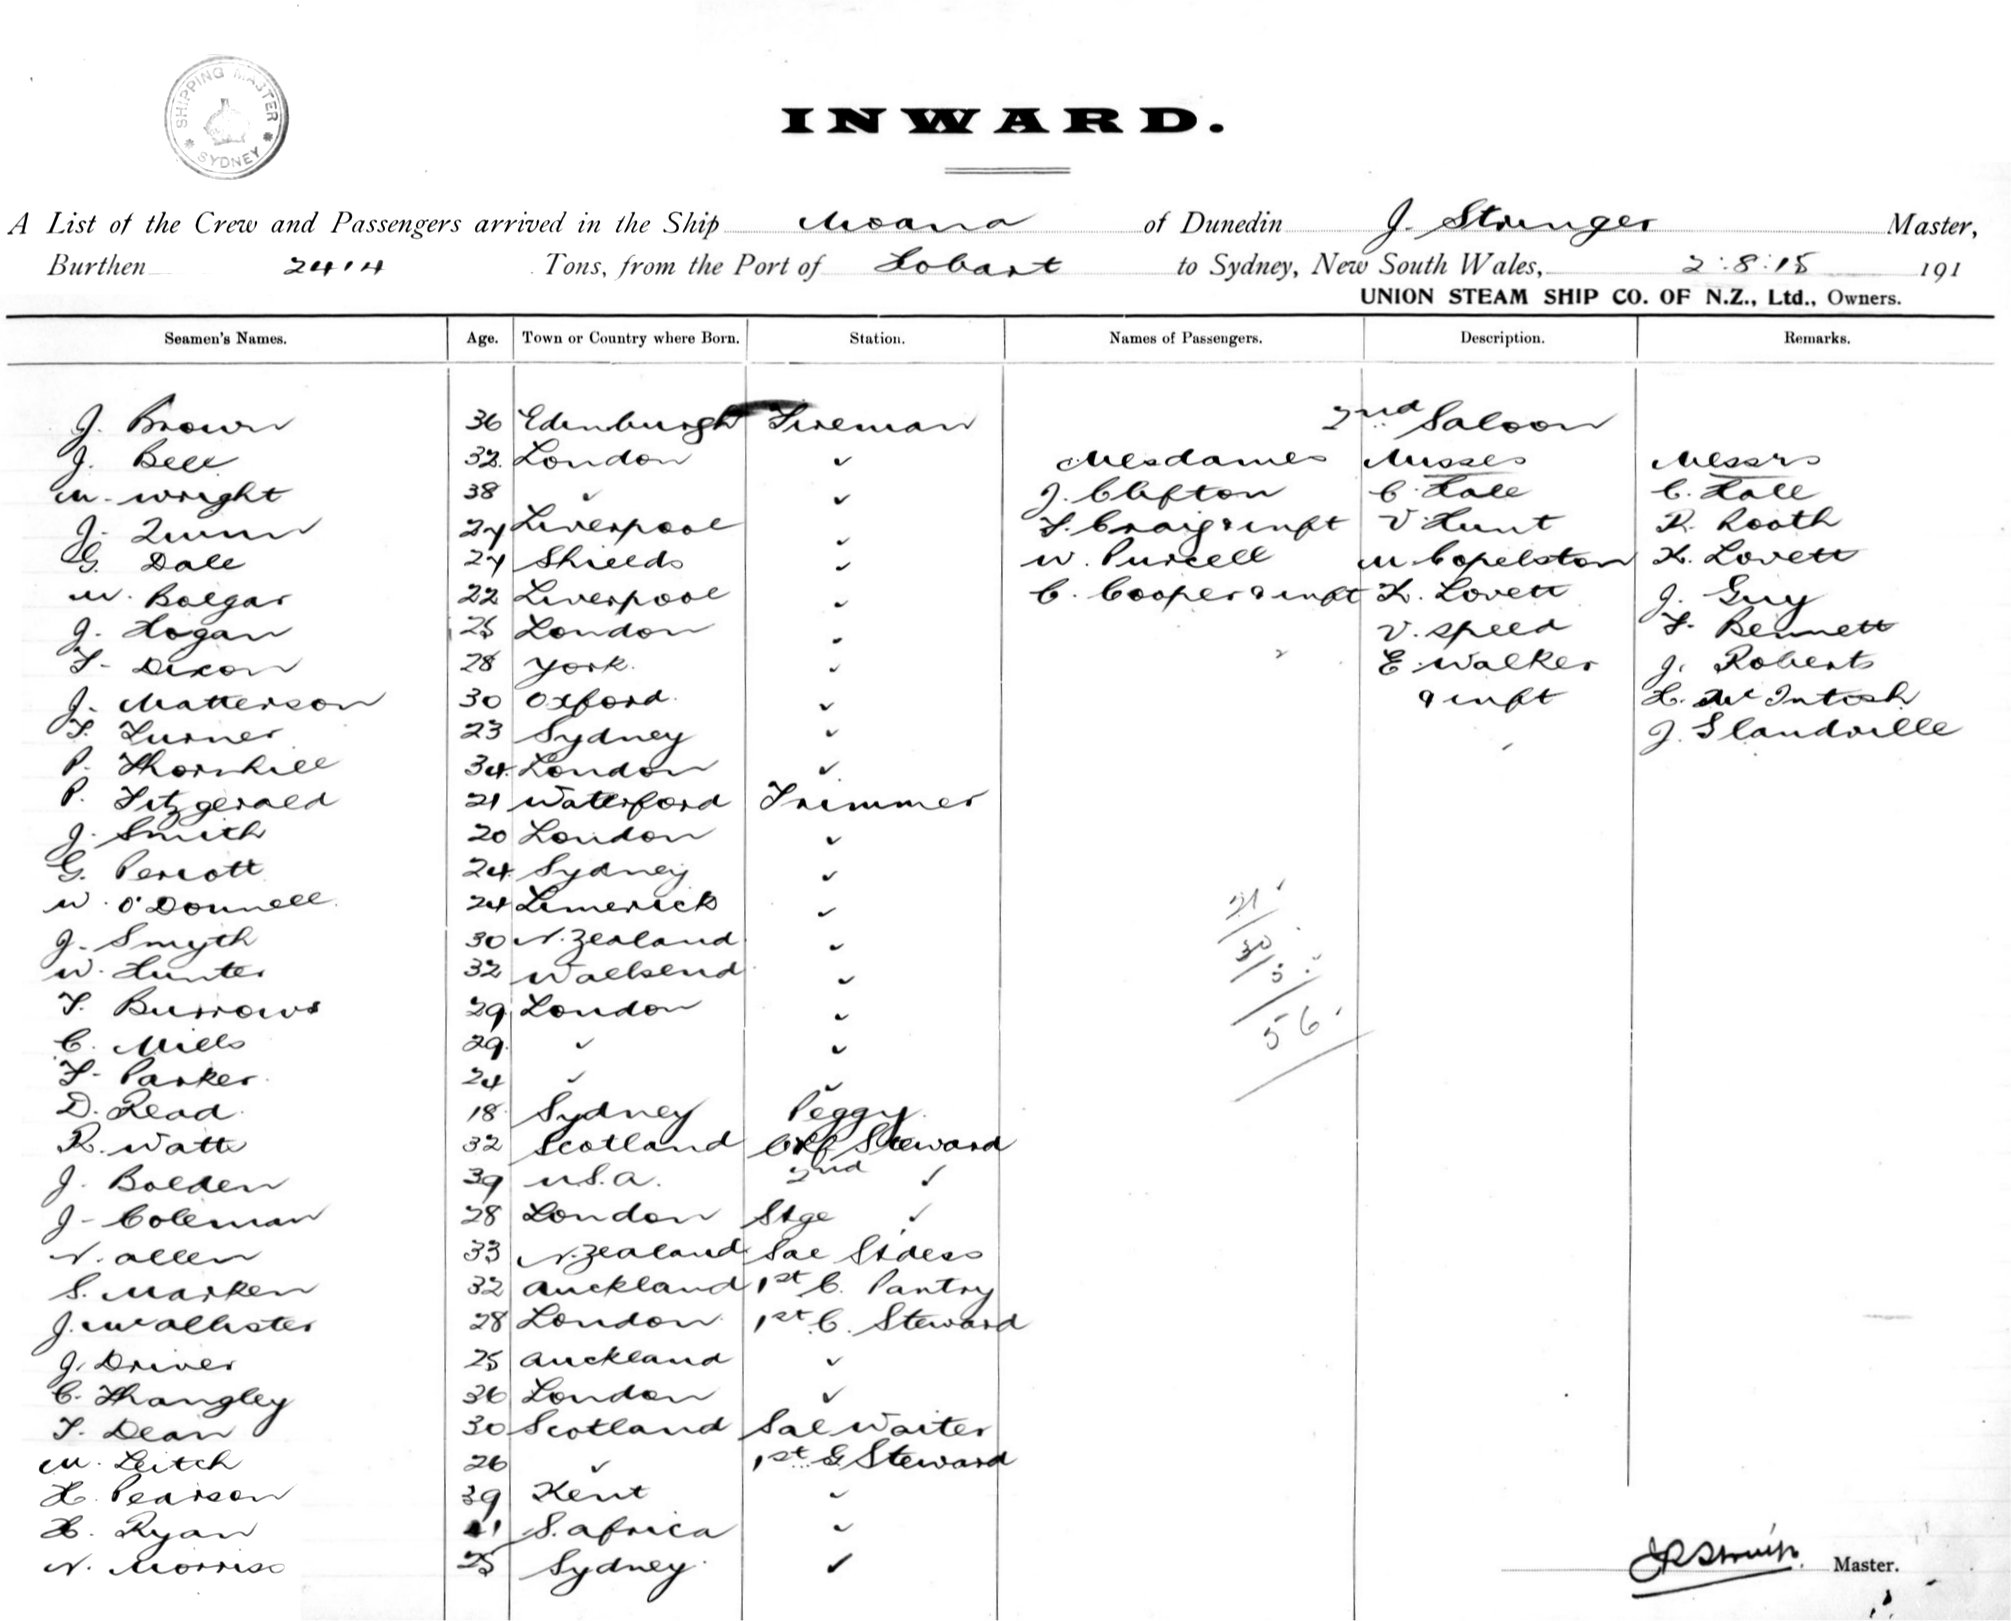 SHIPPING MASTER
SYDNEY
INWARD.
A List of the Crew and Passengers arrived in the Ship Moana of Dunedin J. Stringer Master,
Burthen 2414 Tons, from the Port of Hobart to Sydney, New South Wales, 2:8:15 191
UNION STEAM SHIP CO. OF N.Z., Ltd., Owners.
Seamen's Names. Age. Town or Country where Born. Station. Names of Passengers. Description. Remarks.
J. Brown 36 Edinburgh Fireman 2nd Saloon
J. Bell 32 London ✓ Mesdames Misses Messrs
M. Wright 38 ✓ ✓ J. Clifton C. Hall C. Hall
J. Quinn 24 Liverpool ✓ F. Craig & inft V. Hunt R. Rooth
G. Dale 24 Shields ✓ W. Purcell M. Copelston H. Lovett
W. Bolgar 22 Liverpool ✓ C. Cooper & inft H. Lovett J. Guy
J. Hogan 25 London ✓ V. Speed F. Bennett
F. Dixon 28 York. ✓ E. Walker J. Roberts
J. Matterson 30 Oxford. ✓ & inft H. McIntosh
F. Turner 23 Sydney ✓ J. Glandville
P. Thornhill 34 London ✓
P. Fitzgerald 21 Waterford Trimmer
J. Smith 20 London ✓
G. Perrott 24 Sydney ✓
W. O'Donnell 24 Limerick ✓
21
J. Smyth 30 N. Zealand ✓
30
W. Hunter 32 Wallsend ✓
5
F. Burrows 29 London ✓
56
C. Mills 29 ✓ ✓
F. Parker 24 ✓ ✓
D. Read 18 Sydney Peggy.
R. Watt 32 Scotland Chf Steward
J. Bolden 39 U.S.A. 2nd ✓
J. Coleman 28 London Stge ✓
N. Allen 33 N. Zealand Sal Stdess
S. Marken 32 Auckland 1st C. Pantry
J. McAllister 28 London 1st C. Steward
J. Driver 25 Auckland ✓
C. Thangley 36 London ✓
F. Dean 30 Scotland Sal Waiter
M. Leitch 26 ✓ 1st G Steward
H. Pearson 39 Kent ✓
H. Ryan 21 S. Africa ✓
N. Morriss 25 Sydney ✓
Master.